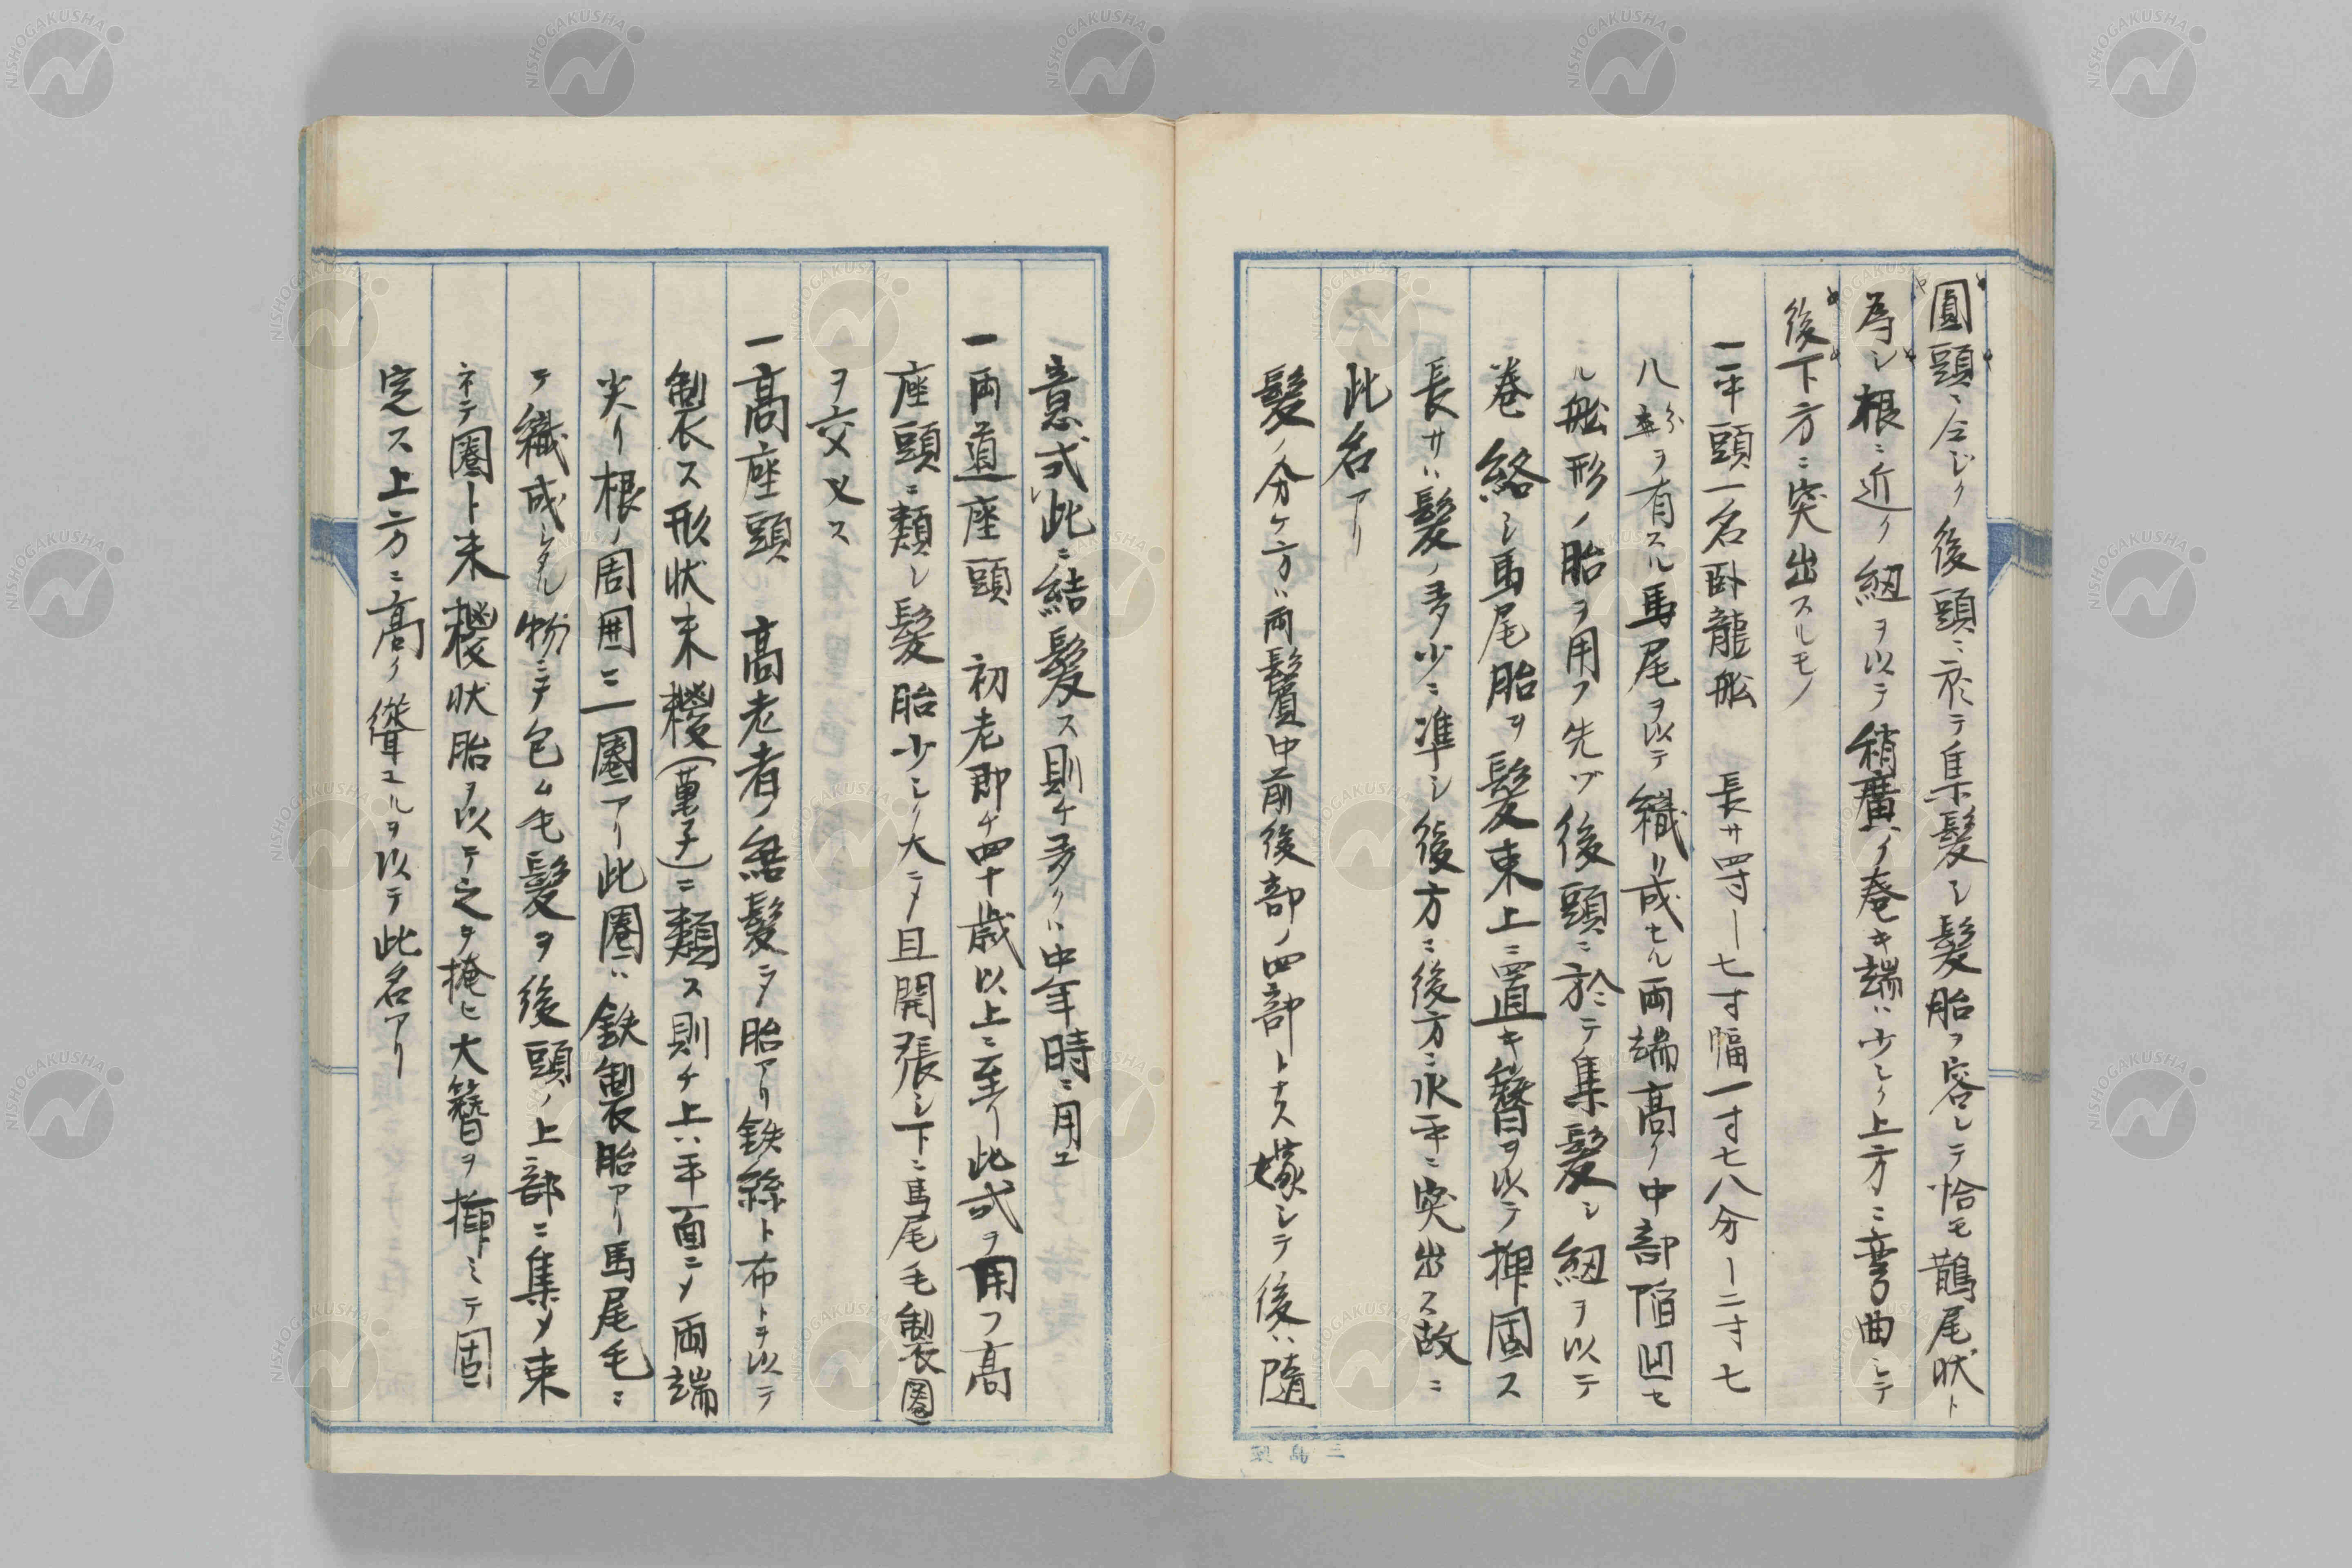 圓頭ニ仝シク後頭ニ於テ集髮シ髮胎ヲ容レテ恰モ鵲尾状ト
為シ根ニ近ク紐ヲ以テ稍廣ク巻キ端ハ少シク上方ニ彎曲シテ
後下方ニ突出スルモノ
一平頭一名臥龍舩 長サ四寸ー七寸幅一寸七八分ー二寸七
八分ヲ有スル馬尾ヲ以テ織リ成セル両端高ク中部陥凹セ
ル舩形ノ胎ヲ用フ先ヅ後頭ニ於テ集髮シ紐ヲ以テ
巻絡シ馬尾胎ヲ髮束上ニ置キ簪ヲ以テ挿固ス
長サハ髮ノ多少ニ準シ後方ニ後方ニ水平ニ突出ス故ニ
此名アリ
髮ノ分ケ方ハ両鬢中前後部ノ四部トナス嫁シテ後ハ隨
意式此ニ結髮ス則チ多クハ中年時ニ用ユ
一両道座頭 初老即チ四十歳以上ニ至リ此式ヲ用フ高
座頭ニ類シ髮胎少シク大ニメ且開張シ下ニ馬尾毛製圏
ヲ交叉ス
一高座頭 高老者ノ結髮ニメ胎アリ鉄絲ト布トヲ以テ
製ス形状末椶(菓子)ニ類ス則チ上ハ平面ニメ両端
尖リ根ノ周囲ニ一圏アリ此圏ハ鉄製胎アリ馬尾毛ニ
テ織成シタル物ニテ包ム毛髮ヲ後頭ノ上部ニ集メ束
ネテ圏ト末椶状胎ヲ以テ之ヲ掩ヒ大簪ヲ挿ミテ固
定ス上方ニ高ク聳ユルヲ以テ此名アリ
NISHOGAKUSHA